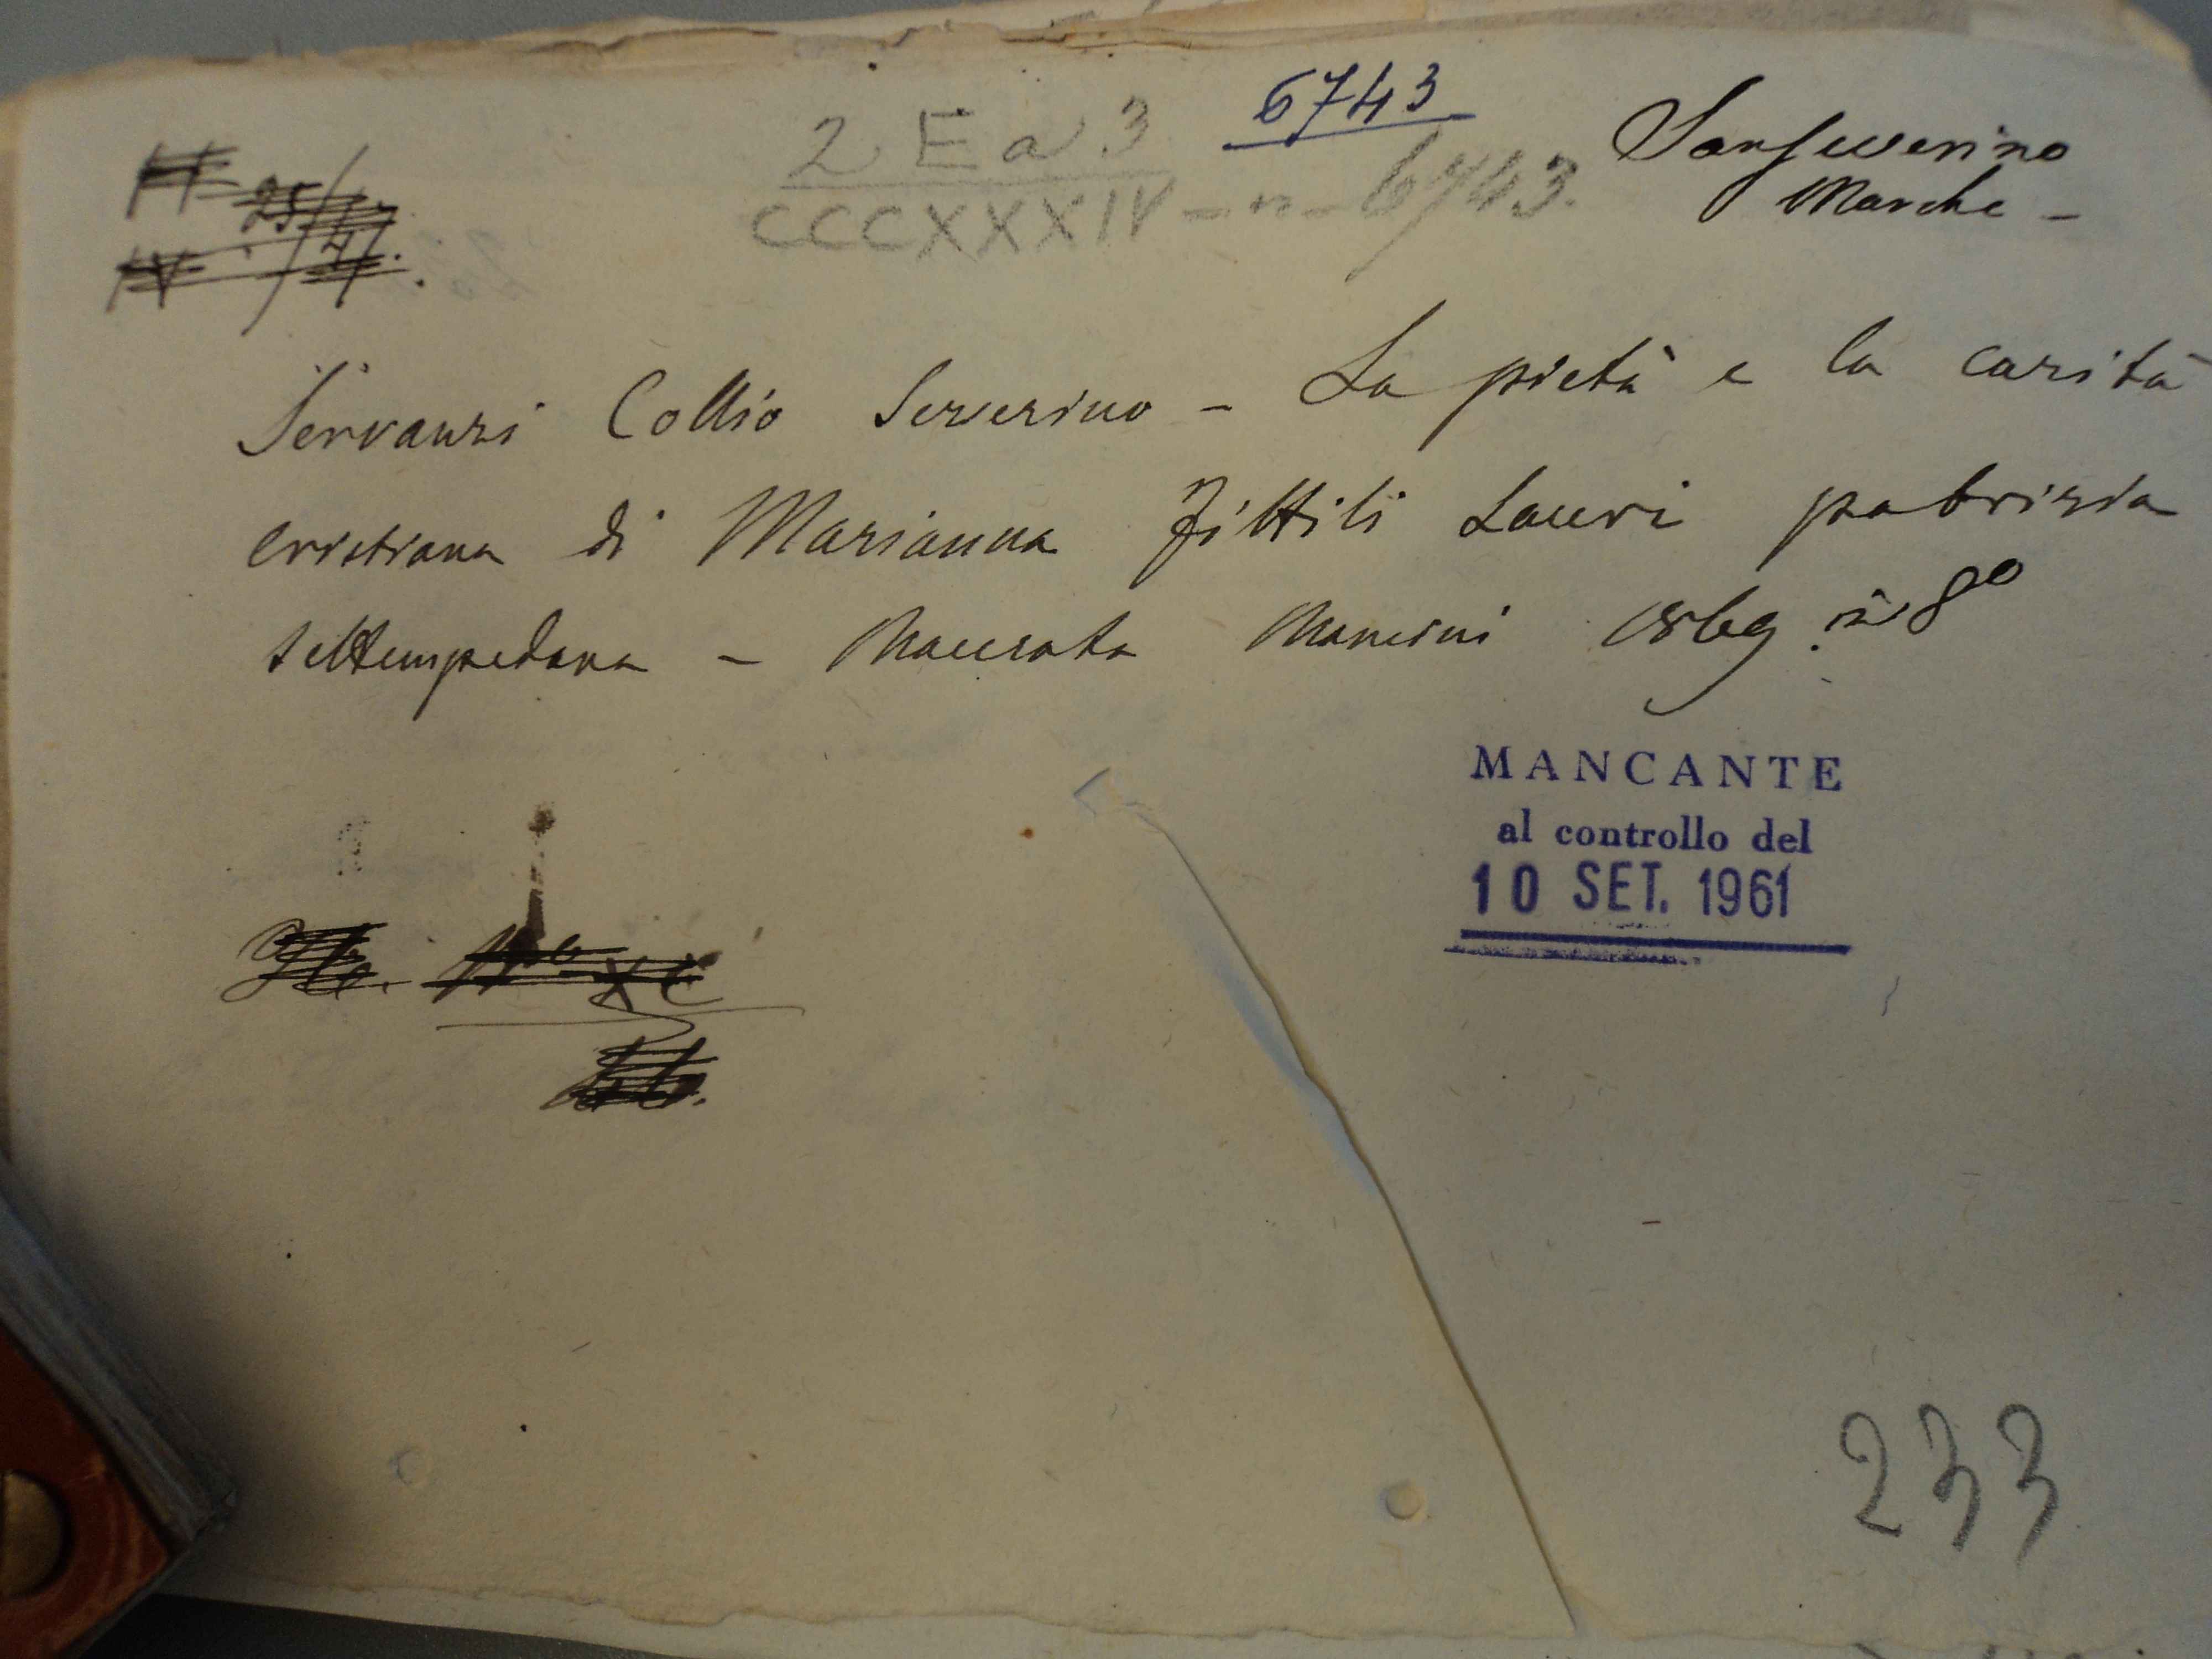 6743
2 E a 3
CCCXXXIV - n - 6743.
Sanseverino
Marche -
25/47.
Servanzi Collio Severino - La pietà e la carità
cristiana di Marianna Fittili Lauri patrizia
settempedana - Macerata Mancini 1869. in 8º
MANCANTE
al controllo del
10 SET. 1961
233